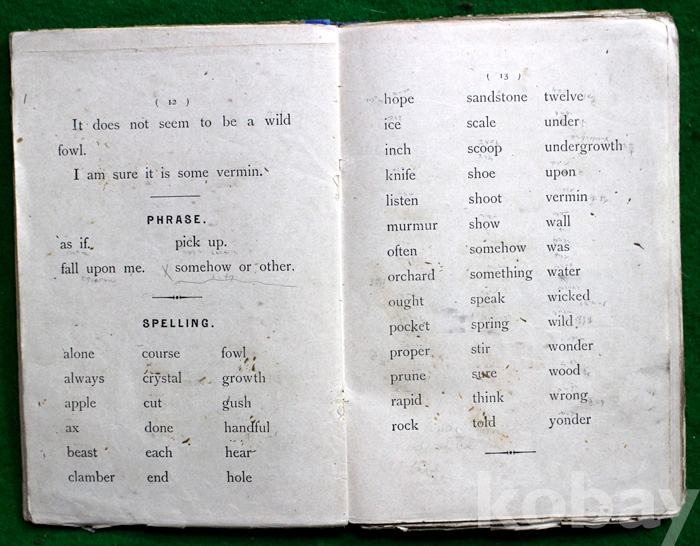 ( 12 )
It does not seem to be a wild
fowl.
I am sure it is some vermin.
PHRASE.
as if. pick up.
fall upon me. somehow or other.
SPELLING.
alone course fowl
always crystal growth
apple cut gush
ax done handful
beast each hear
clamber end hole
( 13 )
hope sandstone twelve
ice scale under
inch scoop undergrowth
knife shoe upon
listen shoot vermin
murmur show wall
often somehow was
orchard something water
ought speak wicked
pocket spring wild
proper stir wonder
prune sure wood
rapid think wrong
rock told yonder
kobay